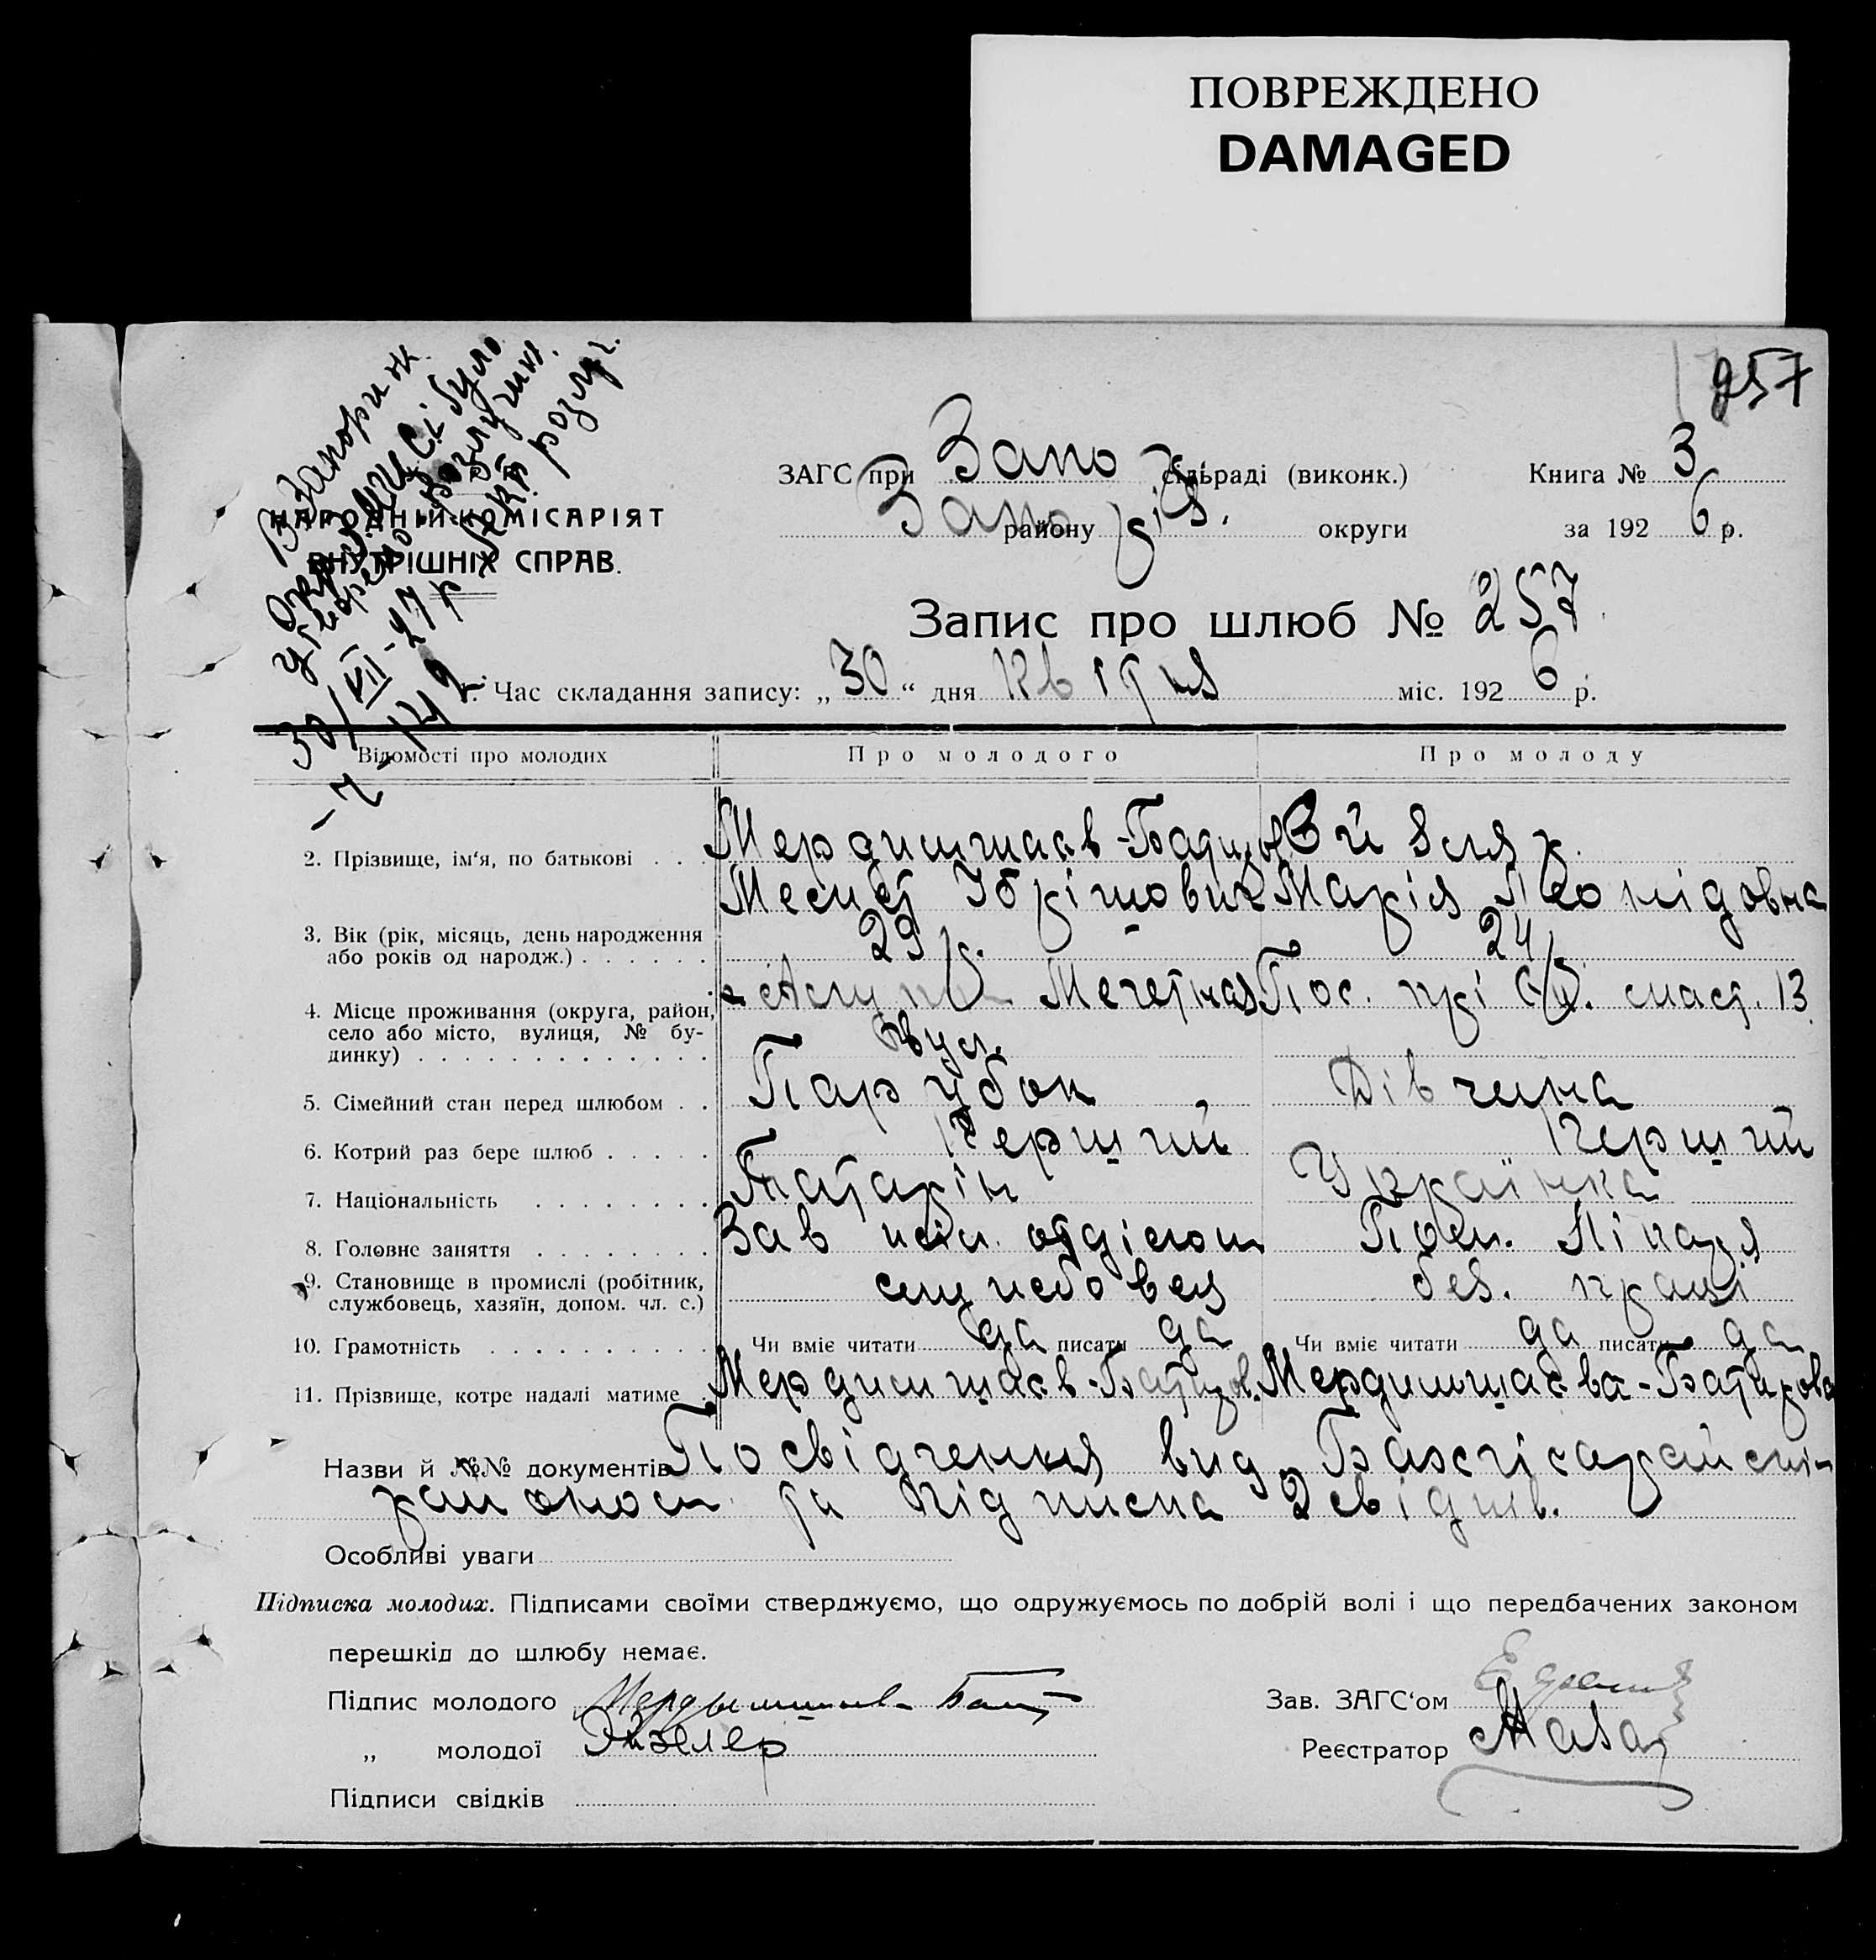 ПОВРЕЖДЕНО
DAMAGED
257
В Запоріж.
Окр. ЗАГСі було
30/VII-27 р.
розлуч.
НАРОДНІЙ КОМІСАРІЯТ
ВНУТРІШНІХ СПРАВ.
ЗАГС при Запо сільраді (виконк.) Книга № 3
Запо району округи за 1926 р.
Запис про шлюб № 257
1. Час складання запису: „30“ дня Квітня міс. 1926 р.
Відомості про молодих Про молодого Про молоду
2. Прізвище, ім‘я, по батькові . . . Мердимшаєв-Батиров Ейзеляр.
Месит Ібрімович Марія Леонідовна
3. Вік (рік, місяць, день народження або років од народж.) . . . . . . 29 р. 24 р.
4. Місце проживання (округа, район, село або місто, вулиця, № будинку) . . . . . . . . . . . . . Мечетная вул. Пос. прі ст. 13
5. Сімейний стан перед шлюбом . . Парубок Дівчина
6. Котрий раз бере шлюб . . . . . Перший Перший
7. Національність . . . . . . . . Татарін Українка
8. Головне заняття . . . . . . . . Зав отділом Пом. Лікаря
9. Становище в промислі (робітник, службовець, хазяїн, допом. чл. с.) служебовец без. праці
10. Грамотність . . . . . . . . . . Чи вміє читати да писати да Чи вміє читати да писати да
11. Прізвище, котре надалі матиме . Мердимшаєв-Батиров. Мердимшаєва-Батирова
Назви й №№ документів Посвідчення вид. Бахчісарайскім
райвоком та підписка 2 свідків.
Особливі уваги
Підписка молодих. Підписами своїми стверджуємо, що одружуємось по добрій волі і що передбачених законом
перешкід до шлюбу немає.
Підпис молодого Зав. ЗАГС‘ом
„ молодої Эйзеляр Реєстратор
Підписи свідків